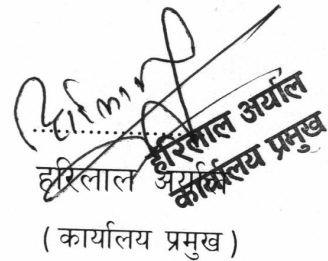 हरिलाल अर्याल
कार्यालय प्रमुख
हरिलाल अर्याल
( कार्यालय प्रमुख )